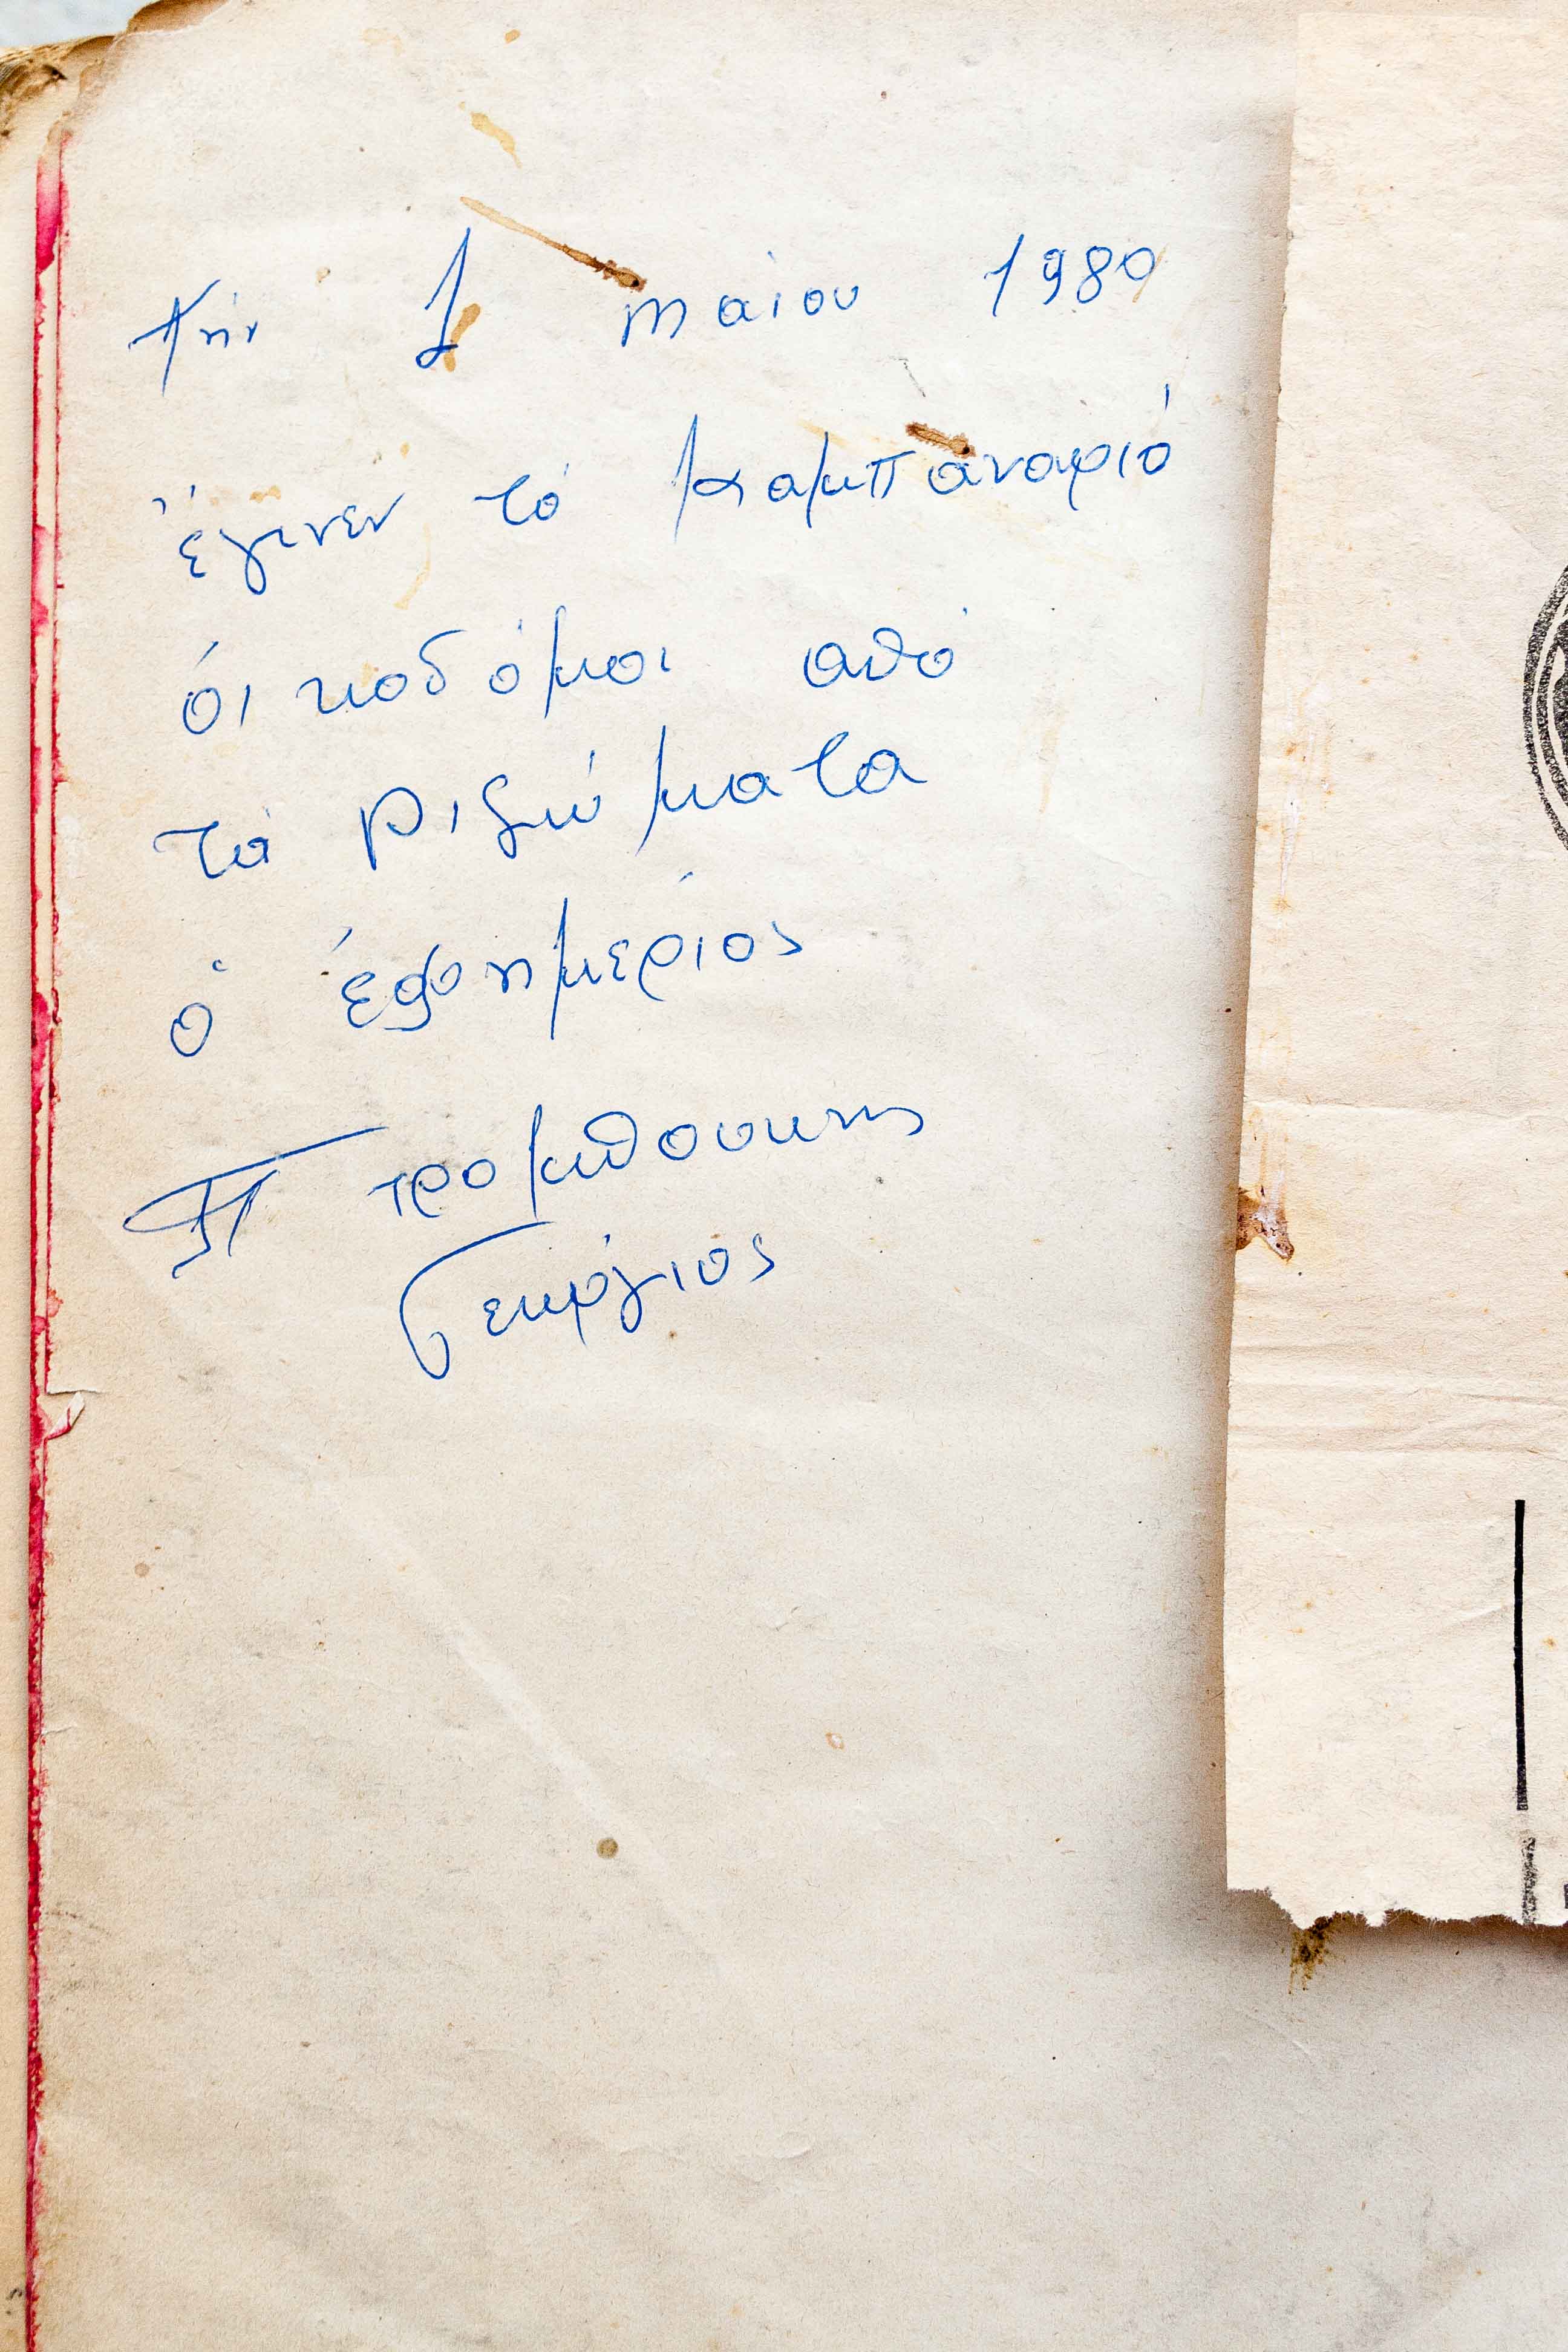 Την 1 Μαίου 1980
έγινεν τό Καμπαναριό
όι κοδόμοι από
τά Ριζώματα
ο έφημέριος
Π τρομπούκης
Γεωργιος